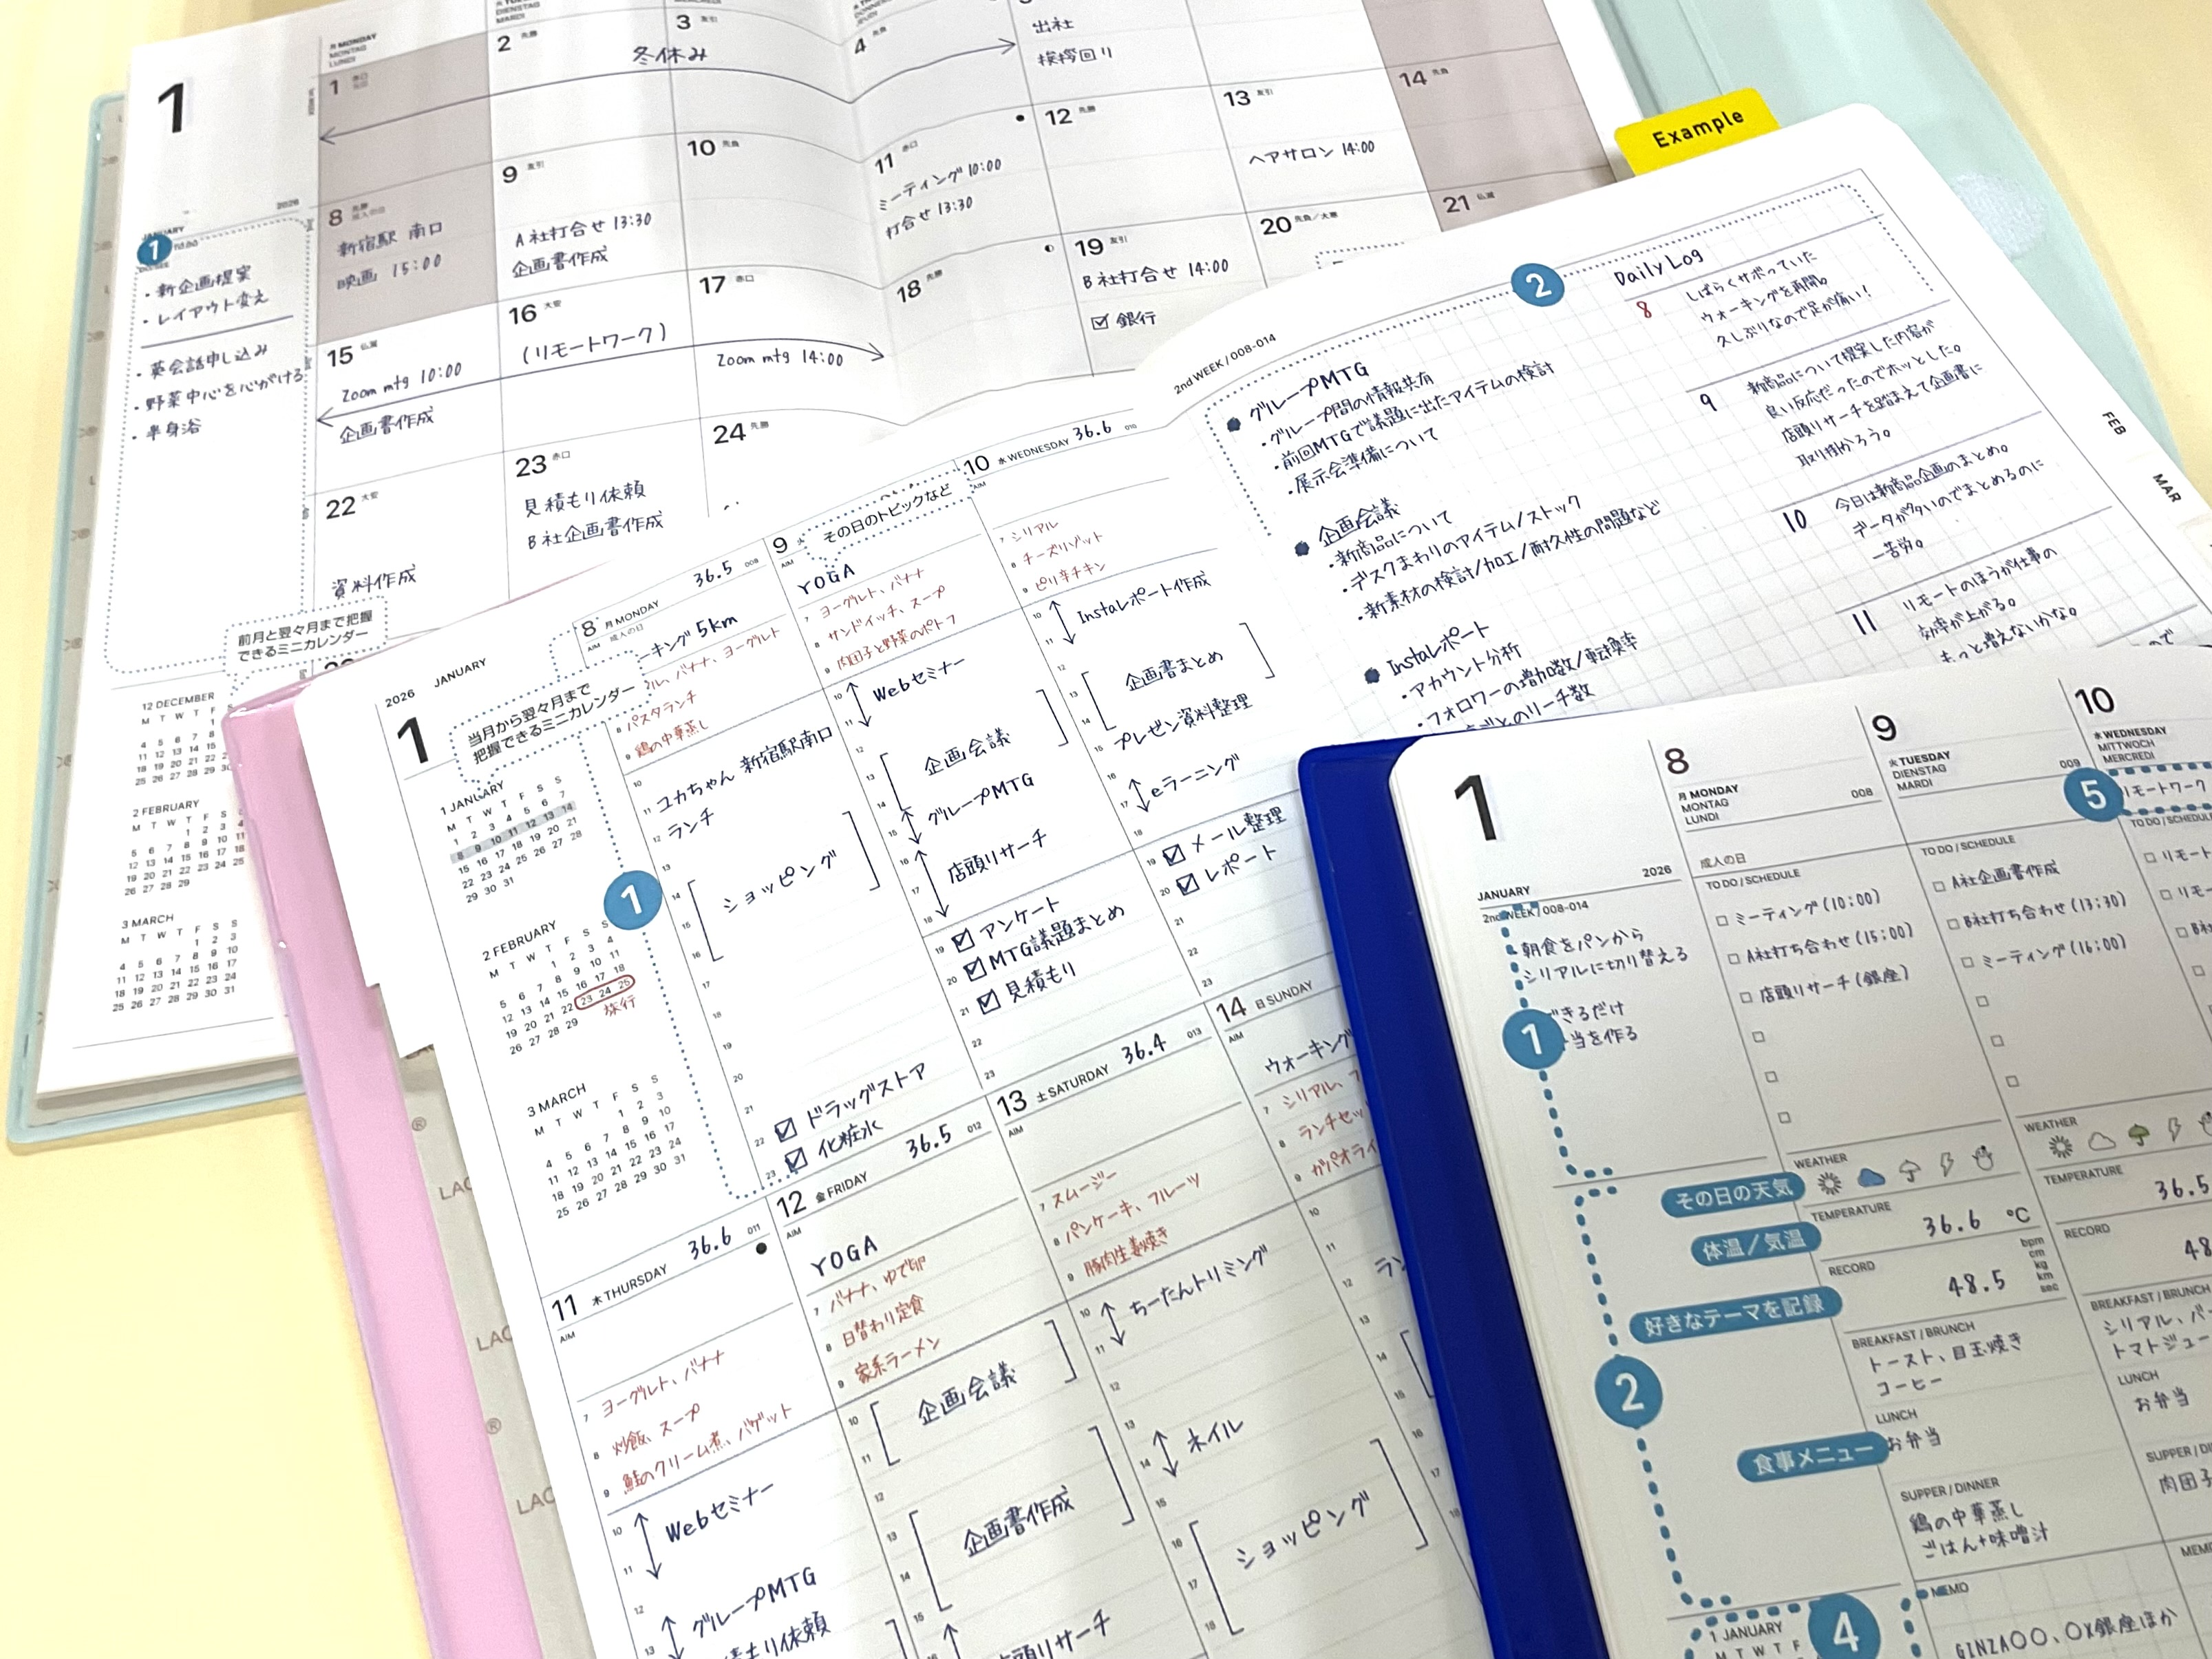 1
JANUARY
2026
1
・新企画提案
・レイアウト変え
・英会話申し込み
・野菜中心を心がける
・半身浴
前月と翌々月まで把握
できるミニカレンダー
12 DECEMBER
M T W T F S
2 FEBRUARY
M T W T F S
3 MARCH
M T W T F S S
1 2 3
4 5 6 7 8 9 10
11 12 13 14 15 16 17
18 19 20 21 22 23 24
25 26 27 28 29 30 31
月 MONDAY
MONTAG
LUNDI
DIENSTAG
MARDI
1 赤口
2 先勝
3 友引
4 先負
冬休み
出社
挨拶回り
8 先勝
成人の日
新宿駅 南口
映画 15:00
9 友引
A社打合せ 13:30
企画書作成
10 先負
11 赤口
ミーティング 10:00
打合せ 13:30
12 先勝
13 友引
ヘアサロン 14:00
14 先負
15 仏滅
Zoom mtg 10:00
企画書作成
16 大安
(リモートワーク)
17 赤口
Zoom mtg 14:00
18 先勝
19 友引
B社打合せ 14:00
☑ 銀行
20 先負/大寒
21 仏滅
22 大安
資料作成
23 赤口
見積もり依頼
B社企画書作成
24 先勝
Example
2nd WEEK / 008-014
2
● グループMTG
・グループ間の情報共有
・前回MTGで議題に出たアイテムの検討
・展示会準備について
● 企画会議
・新商品について
・デスクまわりのアイテム/ストック
・新素材の検討/加工/耐久性の問題など
● Instaレポート
・アカウント分析
・フォロワーの増加数/転換率
ごとのリーチ数
Daily Log
8
しばらくサボっていた
ウォーキングを再開。
久しぶりなので足が痛い!
9
新商品について提案した内容が
良い反応だったのでホッとした。
店頭リサーチを踏まえて企画書に
取り掛かろう。
10
今日は新商品企画のまとめ。
データが多いのでまとめるのに
一苦労。
11
リモートのほうが仕事の
効率が上がる。
もっと増えないかな。
ので
FEB
MAR
2026 JANUARY
1
当月から翌々月まで
把握できるミニカレンダー
1 JANUARY
M T W T F S S
1 2 3 4 5 6 7
8 9 10 11 12 13 14
15 16 17 18 19 20 21
22 23 24 25 26 27 28
29 30 31
2 FEBRUARY
M T W T F S
1 2 3 4
5 6 7 8 9 10 11
12 13 14 15 16 17 18
19 20 21 22 23 24 25
26 27 28 29
旅行
3 MARCH
M T W T F S S
1 2 3
4 5 6 7 8 9 10
11 12 13 14 15 16 17
18 19 20 21 22 23 24
25 26 27 28 29 30 31
1
8 月 MONDAY 36.5 008
成人の日
AIM
ーキング 5km
ル、バナナ、ヨーグルト
8 パスタランチ
9 鶏の中華蒸し
ユカちゃん 新宿駅南口
ランチ
ショッピング
☑ ドラッグストア
☑ 化粧水
9
AIM
その日のトピックなど
YOGA
7 ヨーグルト、バナナ
8 サンドイッチ、スープ
9 肉団子と野菜のポトフ
Webセミナー
企画会議
グループMTG
店頭リサーチ
☑ アンケート
☑ MTG議題まとめ
☑ 見積もり
10 水 WEDNESDAY 36.6 010
AIM
7 シリアル
8 チーズリゾット
9 ピリ辛チキン
Instaレポート作成
企画書まとめ
プレゼン資料整理
eラーニング
☑ メール整理
☑ レポート
11 木 THURSDAY 36.6 011
AIM
7 ヨーグルト、バナナ
8 炒飯、スープ
9 鮭のクリーム煮、バゲット
Webセミナー
グループMTG
積もり依頼
12 金 FRIDAY 36.5 012
AIM
YOGA
7 バナナ、ゆで卵
8 日替わり定食
9 家系ラーメン
企画会議
企画書作成
店頭リサーチ
13 土 SATURDAY 36.4 013
AIM
7 スムージー
8 パンケーキ、フルーツ
9 豚肉生姜焼き
ちーたんトリミング
ネイル
ショッピング
14 日 SUNDAY
AIM
ウォーキング
7 シリアル、フ
8 ランチセッ
9 ガパオライ
ラン
1
JANUARY 2026
2nd WEEK / 008-014
朝食をパンから
シリアルに切り替える
できるだけ
当を作る
1
その日の天気
体温/気温
好きなテーマを記録
2
食事メニュー
1 JANUARY
M T W T F
4
8
月 MONDAY
MONTAG
LUNDI
008
成人の日
TO DO / SCHEDULE
□ ミーティング(10:00)
□ A社打ち合わせ(15:00)
□ 店頭リサーチ(銀座)
WEATHER
TEMPERATURE
36.6 °C
RECORD
48.5
bpm
cm
kg
km
sec
BREAKFAST / BRUNCH
トースト、目玉焼き
コーヒー
LUNCH
お弁当
SUPPER / DINNER
鶏の中華蒸し
ごはん+味噌汁
MEMO
GINZA○○、○X銀座ほか
9
火 TUESDAY
DIENSTAG
MARDI
009
TO DO / SCHEDULE
□ A社企画書作成
□ B社打ち合わせ(13:30)
□ ミーティング(16:00)
WEATHER
TEMPERATURE
36.5
RECORD
48
BREAKFAST / BRUNCH
シリアル、バ
トマトジュー
LUNCH
お弁当
SUPPER / DI
肉団子
MEMO
10
水 WEDNESDAY
MITTWOCH
MERCREDI
5
リモートワーク
TO DO / SCHEDULE
□ リモート
□ リモー
□ B社